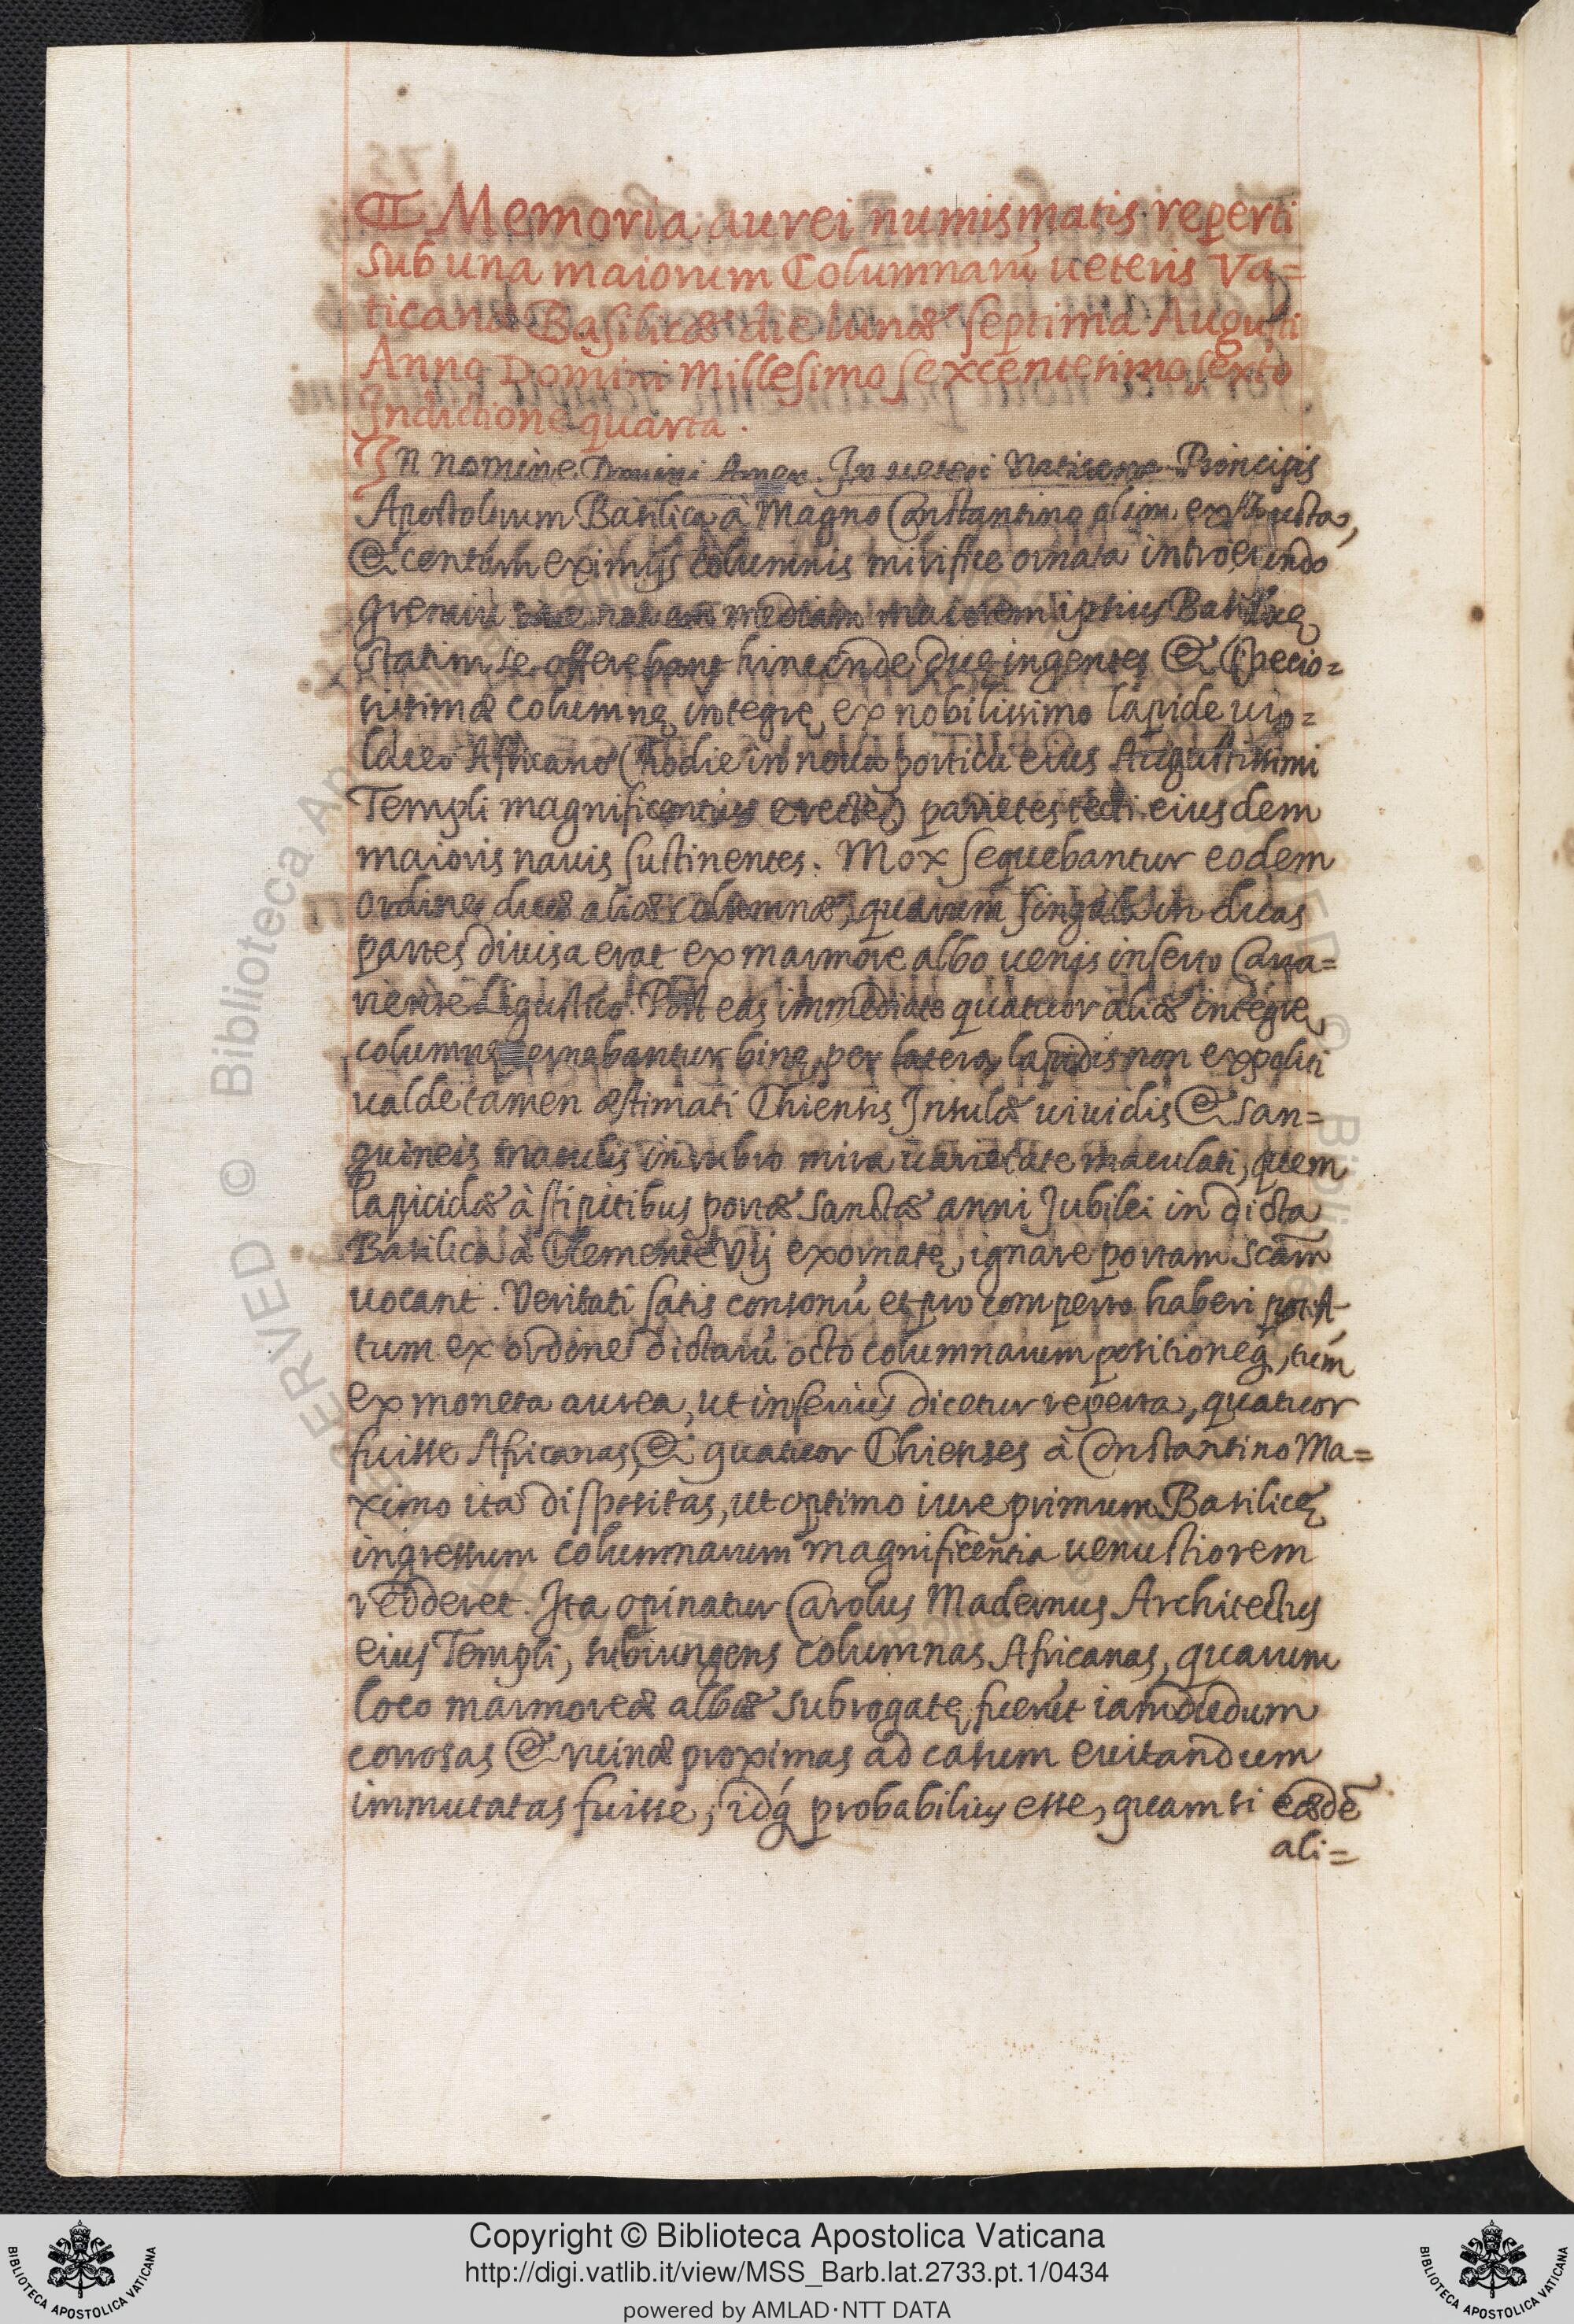 ¶ Memoria aurei numismatis reperti
sub una maiorum Columnarū ueteris Va=
ticanæ Basilicæ die lunæ septima Augusti
Anno Domini Millesimo sexcentesimo sexto
Indictione quarta.
In nomine Domini Amen. In ueteri Vaticana Principis
Apostolorum Basilica à Magno Constantino olim extructa,
& centum eximijs columnis mirifice ornata introeundo
mediam maiorem ipsius Basilicę
statim se offerebant hinc inde duę ingentes & specio=
sissimæ columnę integrę ex nobilissimo lapide uio=
laceo Africano (hodie in noua porticu eius Augustissimi
Templi magnificentius erectę) parietes tecti eiusdem
maioris nauis sustinentes. Mox sequebantur eodem
ordine duæ aliæ columnæ, quarum singula in duas
partes diuisa erat ex marmore albo uenis inserto Carra=
riense Ligustico. Post eas immediate quatuor aliæ integrę
columnę cernebantur binę per latera lapidis non expoliti
ualde tamen æstimati Chiensis Insulæ uiridis & san=
guineis maculis in rubro mira uarietate maculati, quem
lapicidæ à stipitibus portæ sanctæ anni Jubilei in dicta
Basilica à Clemente Vij exornatę, ignare portam scām
uocant. Veritati satis consonū et pro comperto haberi potest
tum ex ordine dictarū octo columnarum positioneq́;, tum
ex moneta aurea, ut inferius dicetur reperta, quatuor
fuisse Africanas, & quatuor Chienses à Constantino Ma=
ximo ita dispositas, ut optimo iure primum Basilicę
ingressum columnarum magnificentia uenustiorem
redderet. Ita opinatur Carolus Madernus Architectus
eius Templi, subiungens columnas Africanas, quarum
loco marmoreæ albæ subrogatę fuerūt iamdudum
corrosas & ruinæ proximas ad casum euitandum
immutatas fuisse; idq́; probabilius esse, quam si eædē
ali=
Copyright © Biblioteca Apostolica Vaticana
http://digi.vatlib.it/view/MSS_Barb.lat.2733.pt.1/0434
powered by AMLAD·NTT DATA
BIBLIOTECA APOSTOLICA VATICANA
BIBLIOTECA APOSTOLICA VATICANA